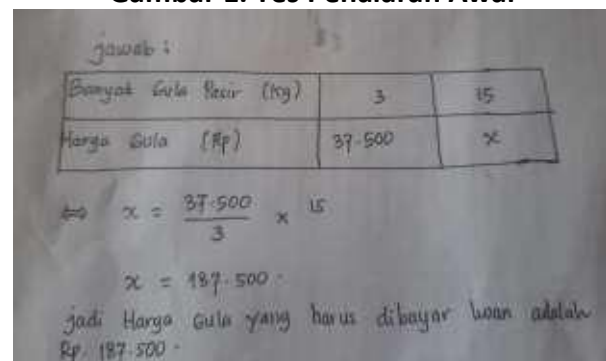 Gambar 1. Tes Penalaran Awal
jawab :
Banyak Gula Pasir (Kg) 3 15
Harga Gula (Rp) 37.500 x
⇔ x = 37.500 / 3 × 15
x = 187.500 -
jadi Harga Gula yang harus dibayar Iwan adalah
Rp. 187.500 -